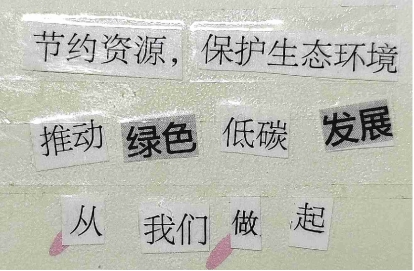 节约资源，保护生态环境
推动 绿色 低碳 发展
从 我们 做 起